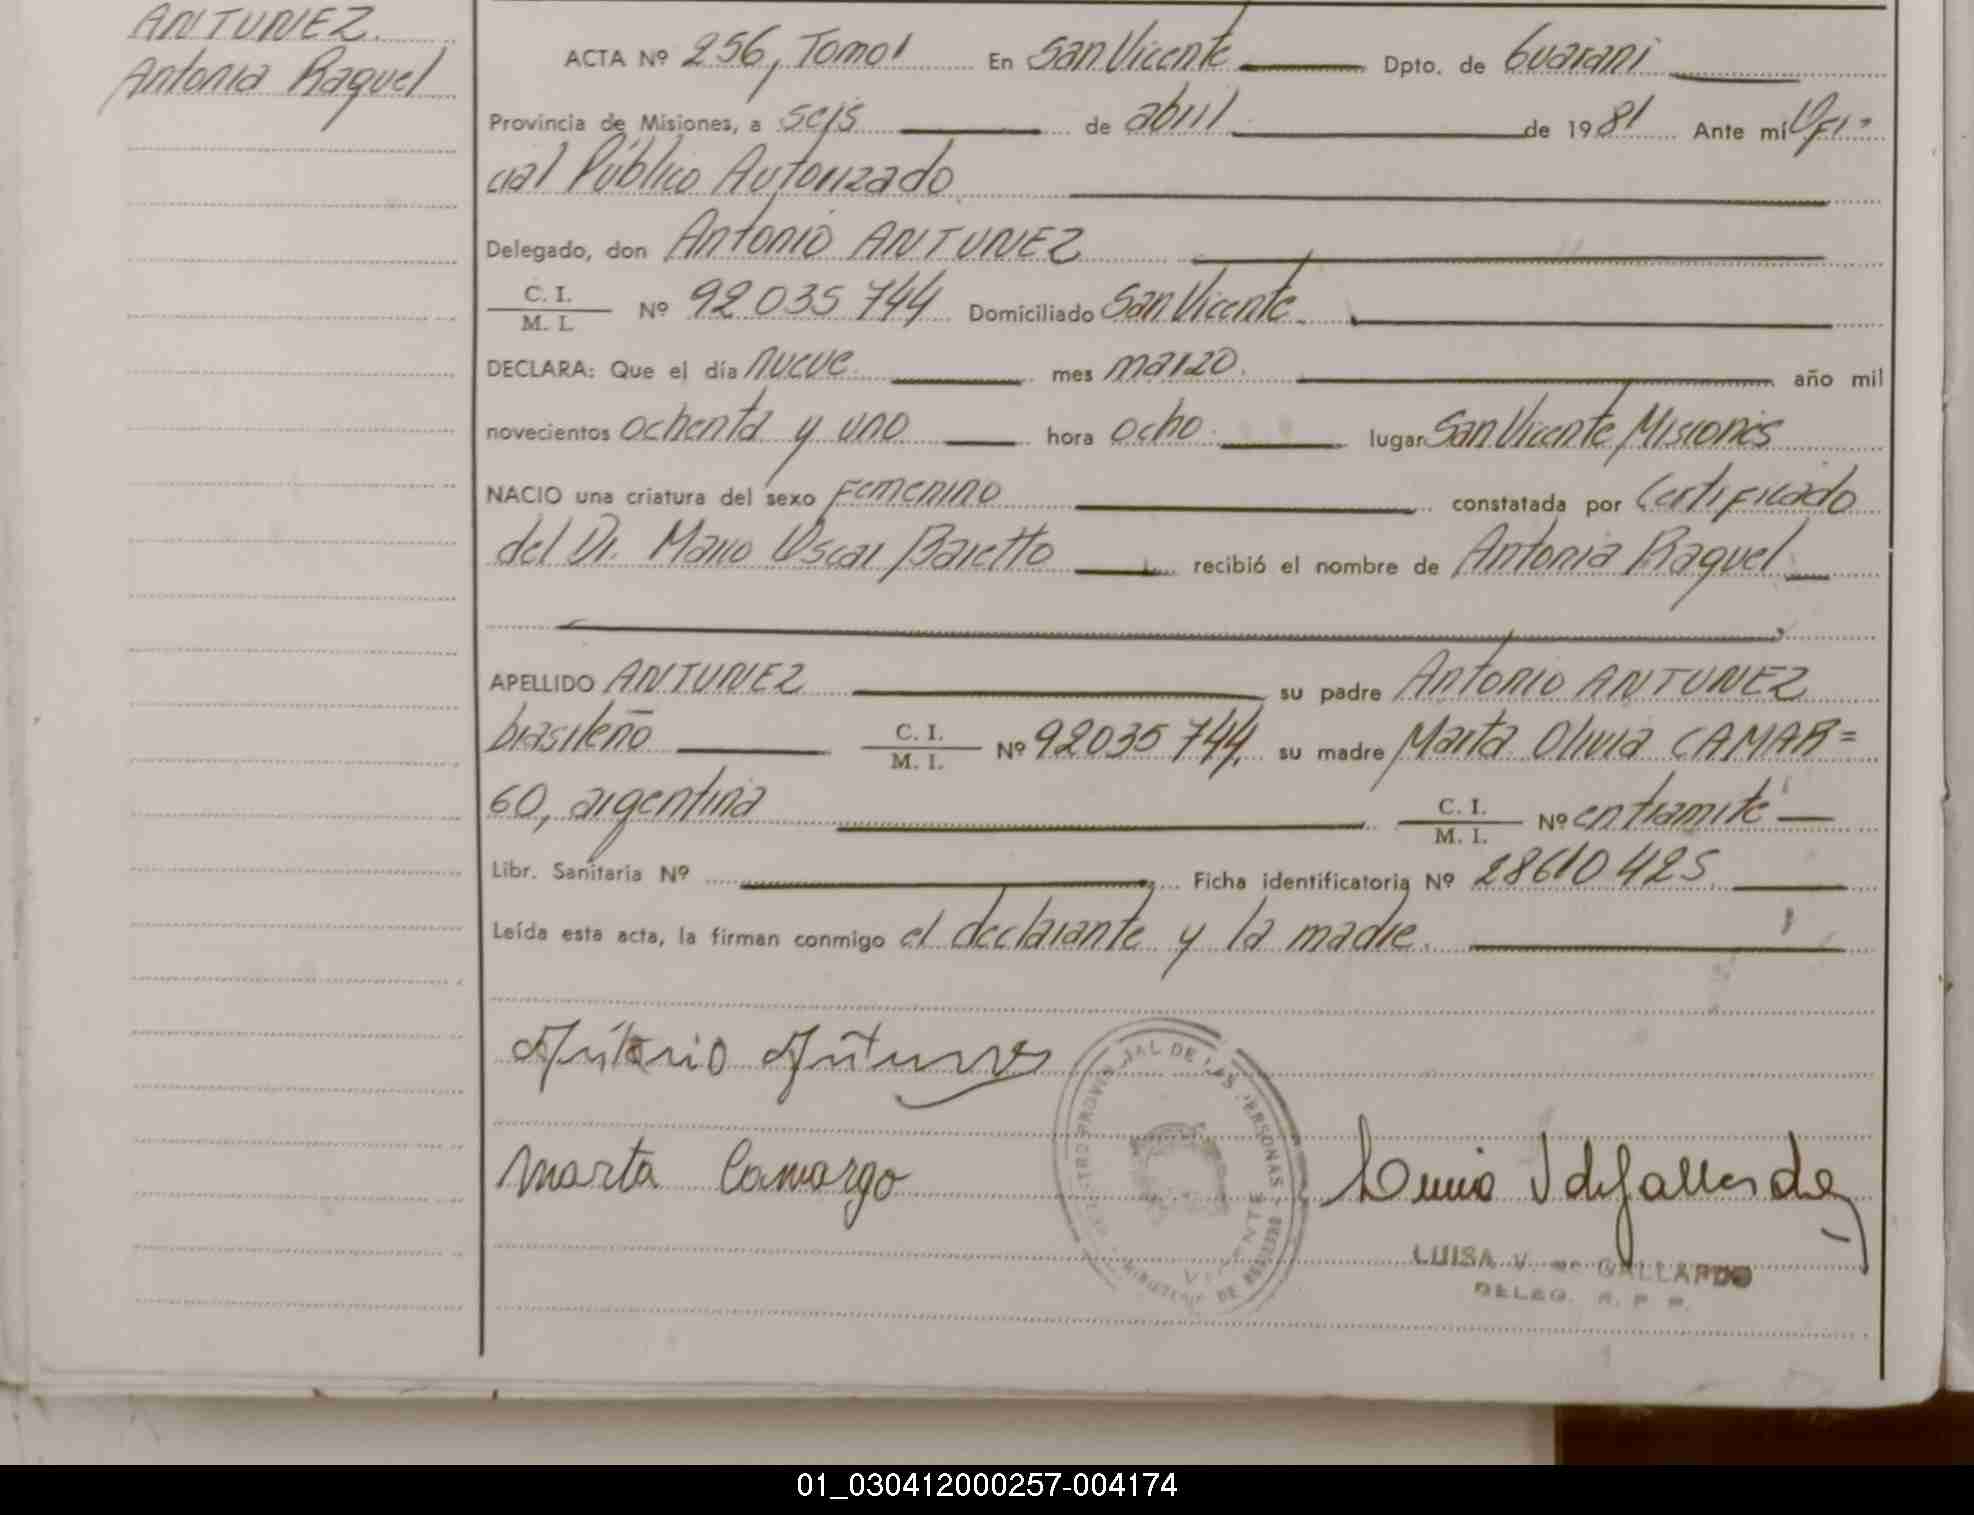 ANTUNEZ.
Antonia Raquel
ACTA Nº 256, Tomo I En San Vicente Dpto. de Guarani
Provincia de Misiones, a seis de abril de 1981 Ante mi Ofi=
cial Público Autorizado
Delegado, don Antonio ANTUNEZ
C. I.
M. I. Nº 92035744 Domiciliado San Vicente
DECLARA: Que el día nueve mes marzo. año mil
novecientos ochenta y uno hora ocho lugar San Vicente, Misiones
NACIO una criatura del sexo Femenino constatada por Certificado
del Dr. Mario Oscar Baretto recibió el nombre de Antonia Raquel
APELLIDO ANTUNEZ su padre Antonio ANTUNEZ
brasileño C. I.
M. I. Nº 92035744, su madre Marta Olivia CAMAR=
GO, argentina C. I.
M. I. Nº en tramite
Libr. Sanitaria Nº Ficha identificatoria Nº 28610425
Leída esta acta, la firman conmigo el declarante y la madre.
Antonio Antunes
Marta Camargo
LUISA V. de GALLARDO
DELEG. R. P. P.
01_030412000257-004174